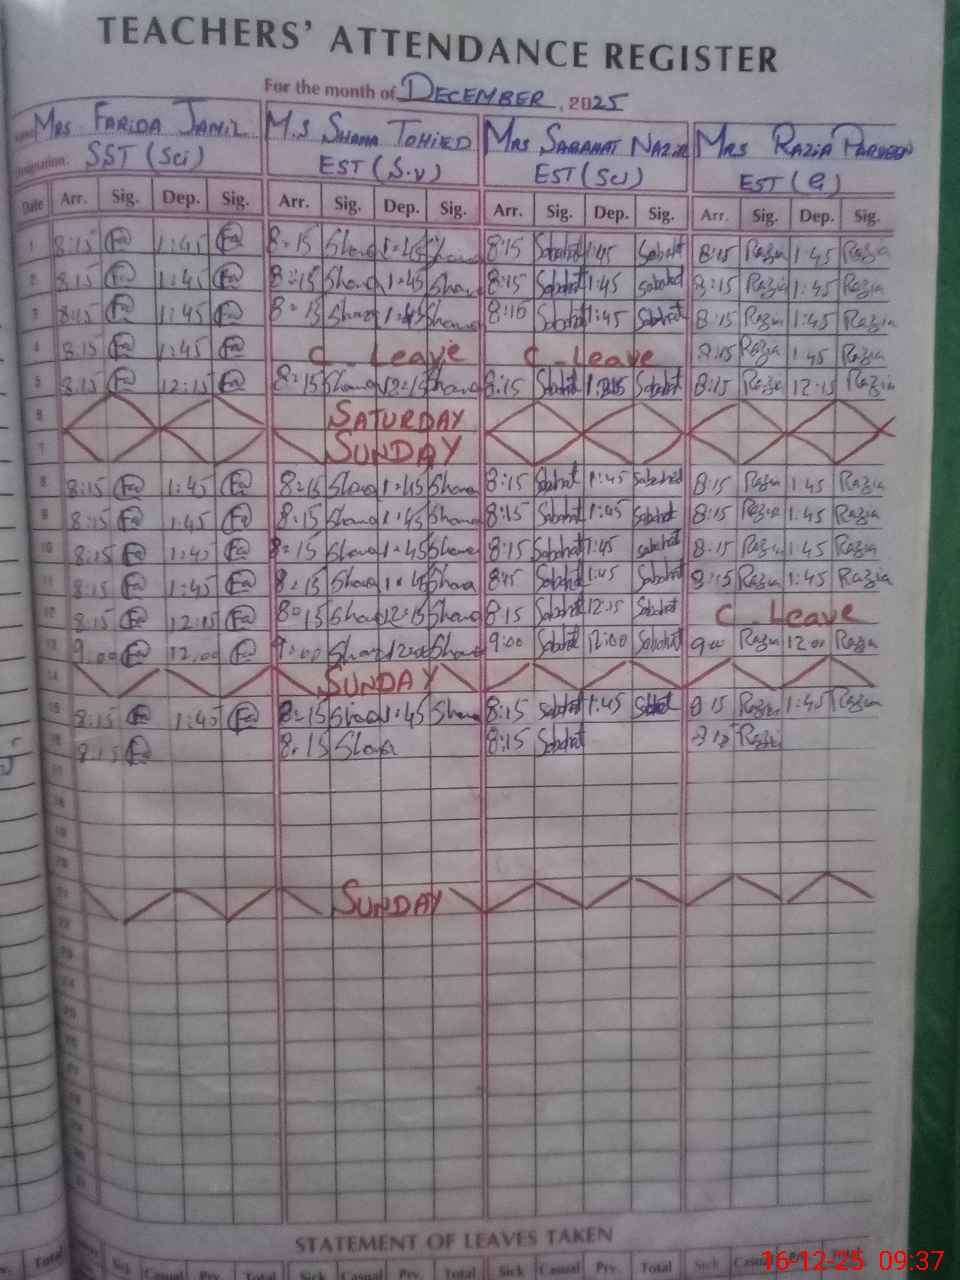 TEACHERS' ATTENDANCE REGISTER
For the month of DECEMBER, 2025
MRS FARIDA JAMIL M.S SHAMA TOHIED MRS SABAHAT NAZIR MRS RAZIA PARVEEN
Designation. SST (Sci) EST (S.V) EST (Sci) EST (e)
Date Arr. Sig. Dep. Sig. Arr. Sig. Dep. Sig. Arr. Sig. Dep. Sig. Arr. Sig. Dep. Sig.
1 8:15 Fa 1:45 Fa 8:15 Shama 1:45 Shama 8:15 Sabahat 1:45 Sabahat 8:15 Razia 1:45 Razia
2 8:15 Fa 1:45 Fa 8:15 Shama 1:45 Shama 8:15 Sabahat 1:45 Sabahat 8:15 Razia 1:45 Razia
3 8:15 Fa 1:45 Fa 8:15 Shama 1:45 Shama 8:10 Sabahat 1:45 Sabahat 8:15 Razia 1:45 Razia
4 8:15 Fa 1:45 Fa C Leave C Leave 8:15 Razia 1:45 Razia
5 8:15 Fa 12:15 Fa 8:15 Shama 12:15 Shama 8:15 Sabahat Sabahat 8:15 Razia 12:15 Razia
6 SATURDAY
7 SUNDAY
8 8:15 Fa 1:45 Fa 8:15 Shama 1:45 Shama 8:15 Sabahat 1:45 Sabahat 8:15 Razia 1:45 Razia
9 8:15 Fa 1:45 Fa 8:15 Shama 1:45 Shama 8:15 Sabahat 1:45 Sabahat 8:15 Razia 1:45 Razia
10 8:15 Fa 1:45 Fa 8:15 Shama 1:45 Shama 8:15 Sabahat 1:45 Sabahat 8:15 Razia 1:45 Razia
11 8:15 Fa 1:45 Fa 8:15 Shama 1:45 Shama Sabahat 1:45 Sabahat 8:15 Razia 1:45 Razia
12 8:15 Fa 12:15 Fa 8:15 Shama 12:15 Shama 8:15 Sabahat 12:15 Sabahat C Leave
13 9:00 Fa 12:00 Fa 9:00 Shama 12:00 Shama 9:00 Sabahat 12:00 Sabahat 9:00 Razia 12:00 Razia
14 SUNDAY
15 8:15 Fa 1:45 Fa 8:15 Shama 1:45 Shama 8:15 Sabahat 1:45 Sabahat 8:15 Razia 1:45 Razia
16 8:15 Fa 8:15 Shama 8:15 Sabahat Razia
17
18
19
20
21 SUNDAY
22
23
24
25
26
27
28
29
30
31
STATEMENT OF LEAVES TAKEN
Total Sick Casual Prv. Total Sick Casual Prv. Total Sick Casual Prv. Total Sick Casual
16-12-25 09:37